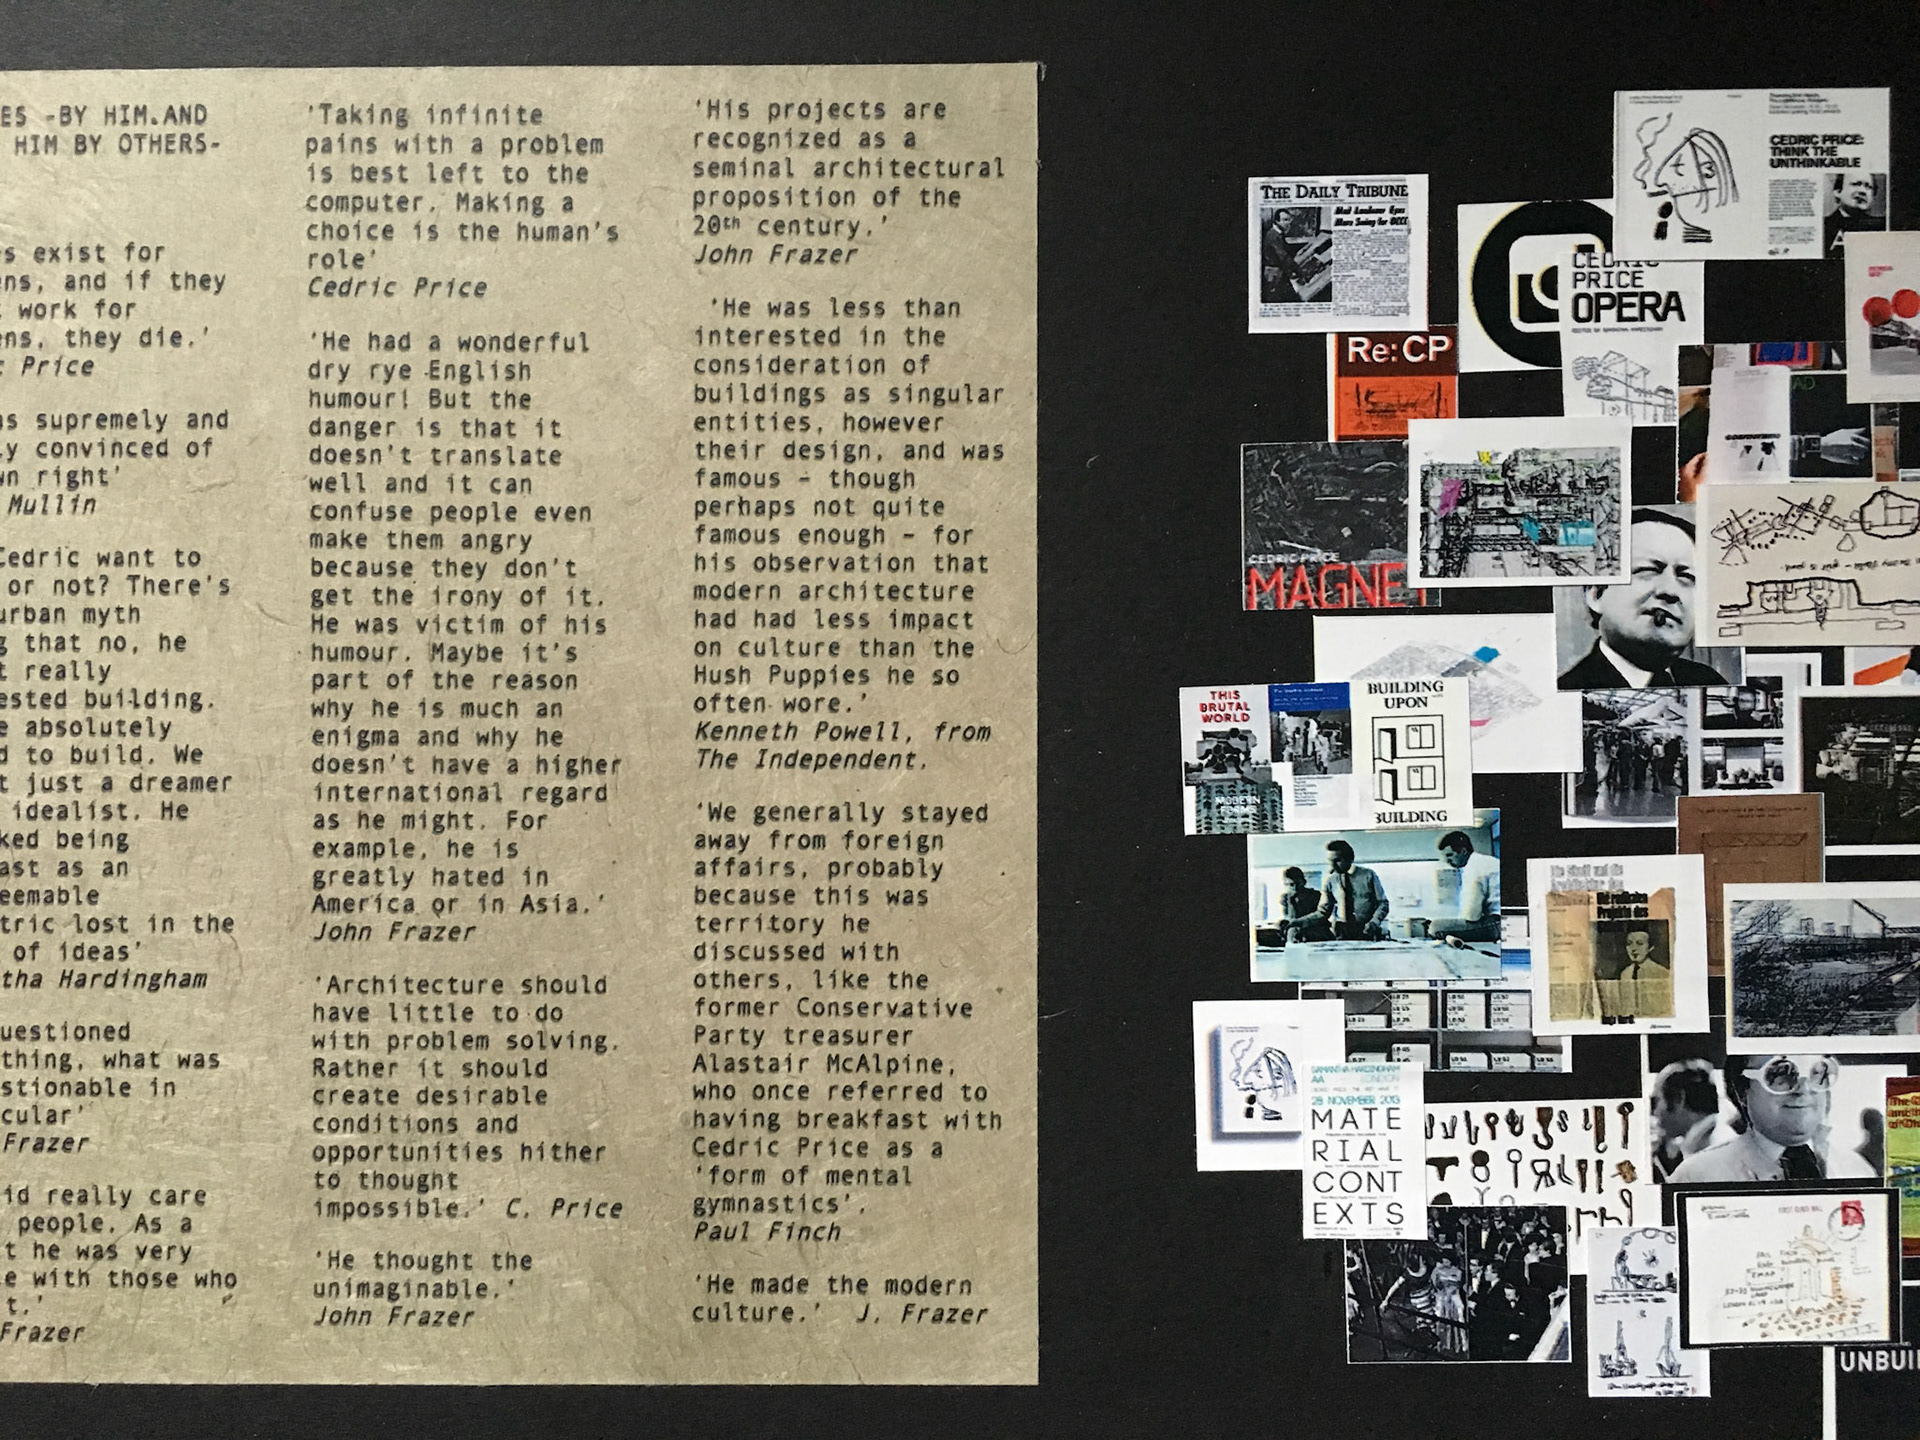 ES -BY HIM.AND
HIM BY OTHERS-
s exist for
ens, and if they
work for
ens, they die.'
c Price
as supremely and
ly convinced of
wn right'
Mullin
Cedric want to
or not? There's
urban myth
g that no, he
t really
ested building.
e absolutely
d to build. We
t just a dreamer
idealist. He
ked being
ast as an
eemable
tric lost in the
of ideas'
tha Hardingham
uestioned
thing, what was
stionable in
cular'
Frazer
id really care
people. As a
t he was very
e with those who
t.'
Frazer
'Taking infinite
pains with a problem
is best left to the
computer. Making a
choice is the human's
role'
Cedric Price
'He had a wonderful
dry rye English
humour! But the
danger is that it
doesn't translate
well and it can
confuse people even
make them angry
because they don't
get the irony of it.
He was victim of his
humour. Maybe it's
part of the reason
why he is much an
enigma and why he
doesn't have a higher
international regard
as he might. For
example, he is
greatly hated in
America or in Asia.'
John Frazer
'Architecture should
have little to do
with problem solving.
Rather it should
create desirable
conditions and
opportunities hither
to thought
impossible.' C. Price
'He thought the
unimaginable.'
John Frazer
'His projects are
recognized as a
seminal architectural
proposition of the
20th century.'
John Frazer
'He was less than
interested in the
consideration of
buildings as singular
entities, however
their design, and was
famous - though
perhaps not quite
famous enough - for
his observation that
modern architecture
had had less impact
on culture than the
Hush Puppies he so
often wore.'
Kenneth Powell, from
The Independent.
'We generally stayed
away from foreign
affairs, probably
because this was
territory he
discussed with
others, like the
former Conservative
Party treasurer
Alastair McAlpine,
who once referred to
having breakfast with
Cedric Price as a
'form of mental
gymnastics'.
Paul Finch
'He made the modern
culture.' J. Frazer
CEDRIC PRICE:
THINK THE
UNTHINKABLE
THE DAILY TRIBUNE
CEDRIC
PRICE
OPERA
Re:CP
AD
CEDRIC PRICE
MAGNET
THIS
BRUTAL
WORLD
BUILDING
UPON
BUILDING
SAMANTHA HARDINGHAM
AA LONDON
28 NOVEMBER 2013
MATE
RIAL
CONT
EXTS
UNBUI